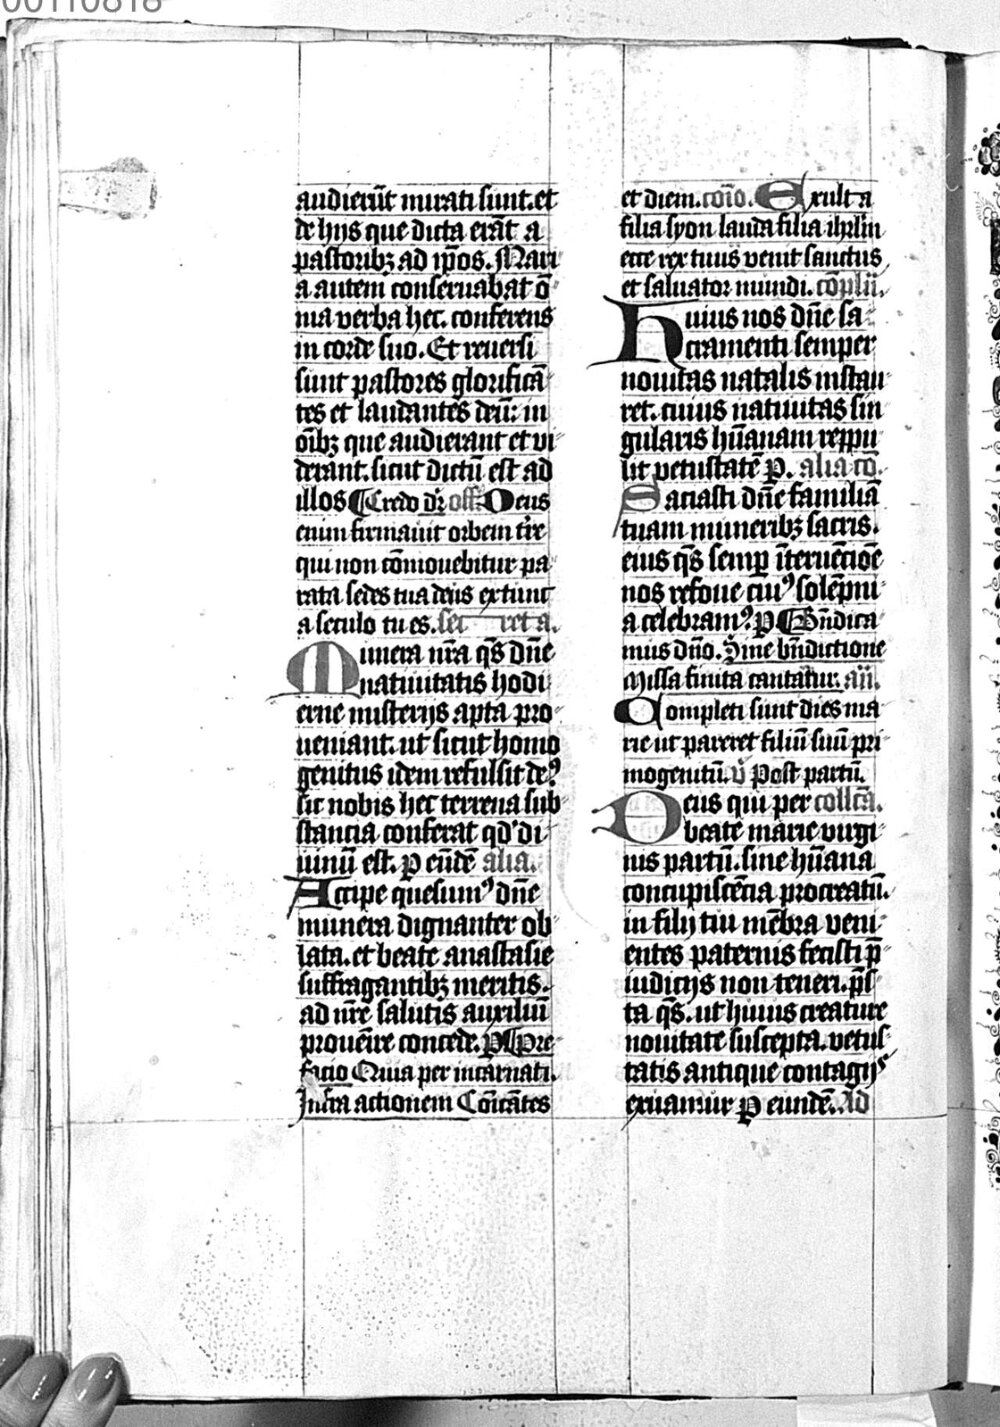 00110818
audierūt mirati sunt. et
de hijs que dicta erāt a
pastoribꝫ ad ip̄os. Mari
a autem conseruabat ō
nia verba hec. conferens
in corde suo. Et reuersi
sunt pastores glorificā
tes et laudantes deū: in
oīb̄ꝫ que audierant et vi
derant. sicut dictū est ad
illos ¶ Credo dr̄ off. Deus
enim firmauit orbem tr̄e
qui non cōmouebitur pa
rata sedes tua deus extunc
a seculo tu es. secreta.
Munera nr̄a qs̄ dn̄e
natiuitatis hodi
erne misterijs apta pro
ueniant. ut sicut homo
genitus idem refulsit deꝰ
sic nobis hec terrena sub
stancia conferat qd' di
uinū est. p eūdē alia.
Accipe quesumꝰ dn̄e
munera dignanter ob
lata. et beate anastasie
suffragantibꝫ meritis.
ad nr̄e salutis auxiliū
prouēire concede. p ¶ Pre
facio Quia per incarnati.
Infra actionem Cōicātes
et diem. cōio. Exulta
filia syon lauda filia ihrl̄m
ecce rex tuus venit sanctus
et saluator mundi. cōplīi.
Huius nos dn̄e sa
cramenti semper
nouitas natalis instau
ret. cuius natiuitas sin
gularis hūanam reppu
lit vetustatē p. alia cō.
Saciasti dn̄e familiā
tuam muneribꝫ sacris.
eius qs̄ semꝑ īteruēcioē
nos refoue cuiꝰ solēpni
a celebramꝰ. p ¶ Bn̄dica
mus dn̄o. Sine bn̄dictione
Missa finita cantatur. añ.
Completi sunt dies ma
rie ut pareret filiū suū pri
mogenitū. v̄ Post partū.
Deus qui per collcā.
beate marie virgi
nis partū. sine hūana
concupiscēcia procreatū.
in filij tui mēbra veni
entes paternis fecisti p̄
iudicijs non teneri. p̄s
ta qs̄. ut huius creature
nouitate suscepta. vetus
tatis antique contagijs
exuamur p eundē. Ad